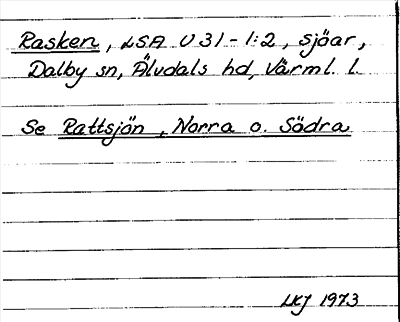 Rasken, LSA U 31 - 1:2, sjöar,
Dalby sn, Älvdals hd, Värml. l.
Se Rattsjön, Norra o. Södra
LKJ 1973